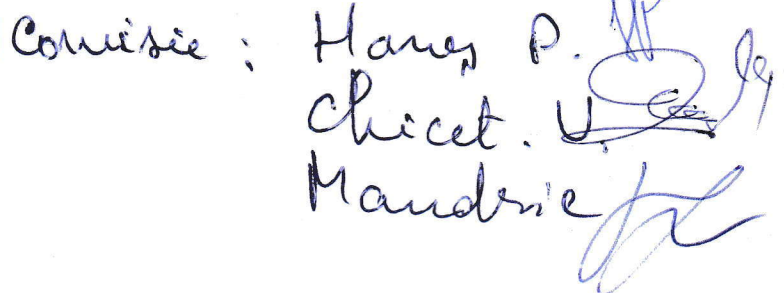 Comisie : Haneș P.
Chicet. V.
Mandric